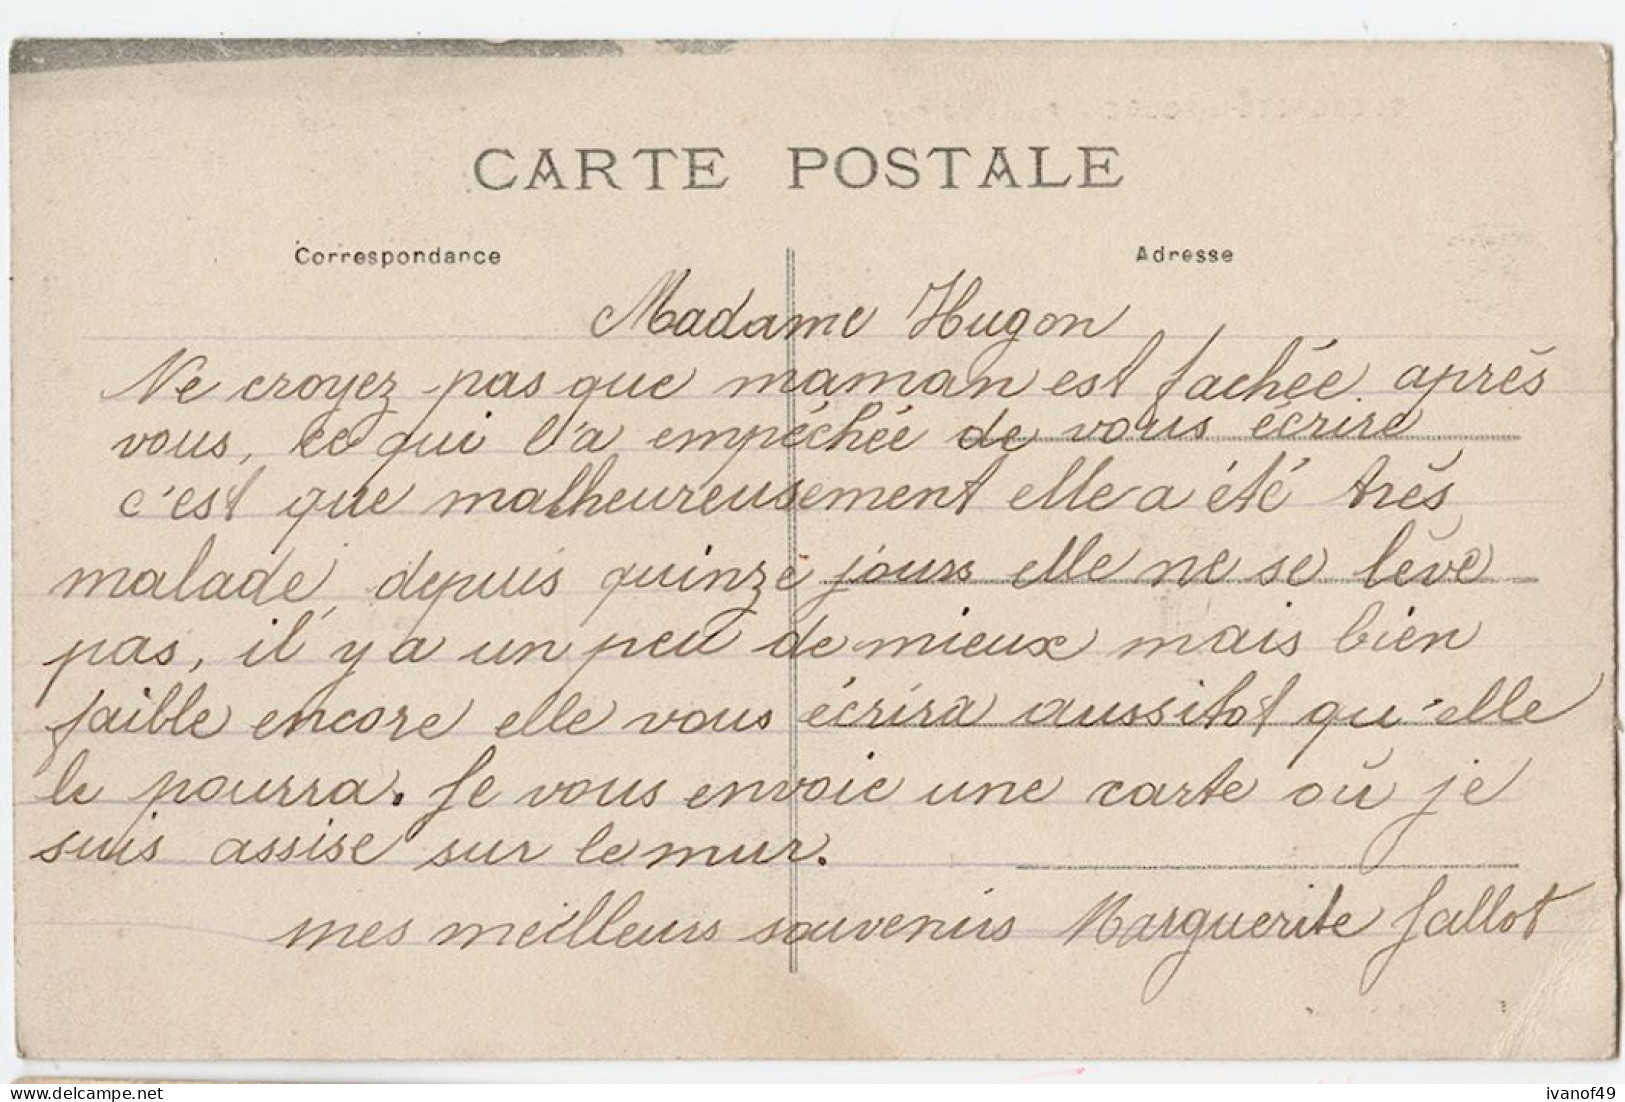 CARTE POSTALE
Correspondance
Adresse
Madame Hugon
Ne croyez pas que maman est fachée après
vous, ce qui l'a empéchée de vous écrire
c'est que malheureusement elle a été très
malade, depuis quinze jours elle ne se lève
pas, il y a un peu de mieux mais bien
faible encore elle vous écrira aussitot qu'elle
le pourra. Je vous envoie une carte où je
suis assise sur le mur.
mes meilleurs souvenirs Marguerite Jallot
delcampe.net
ivanof49